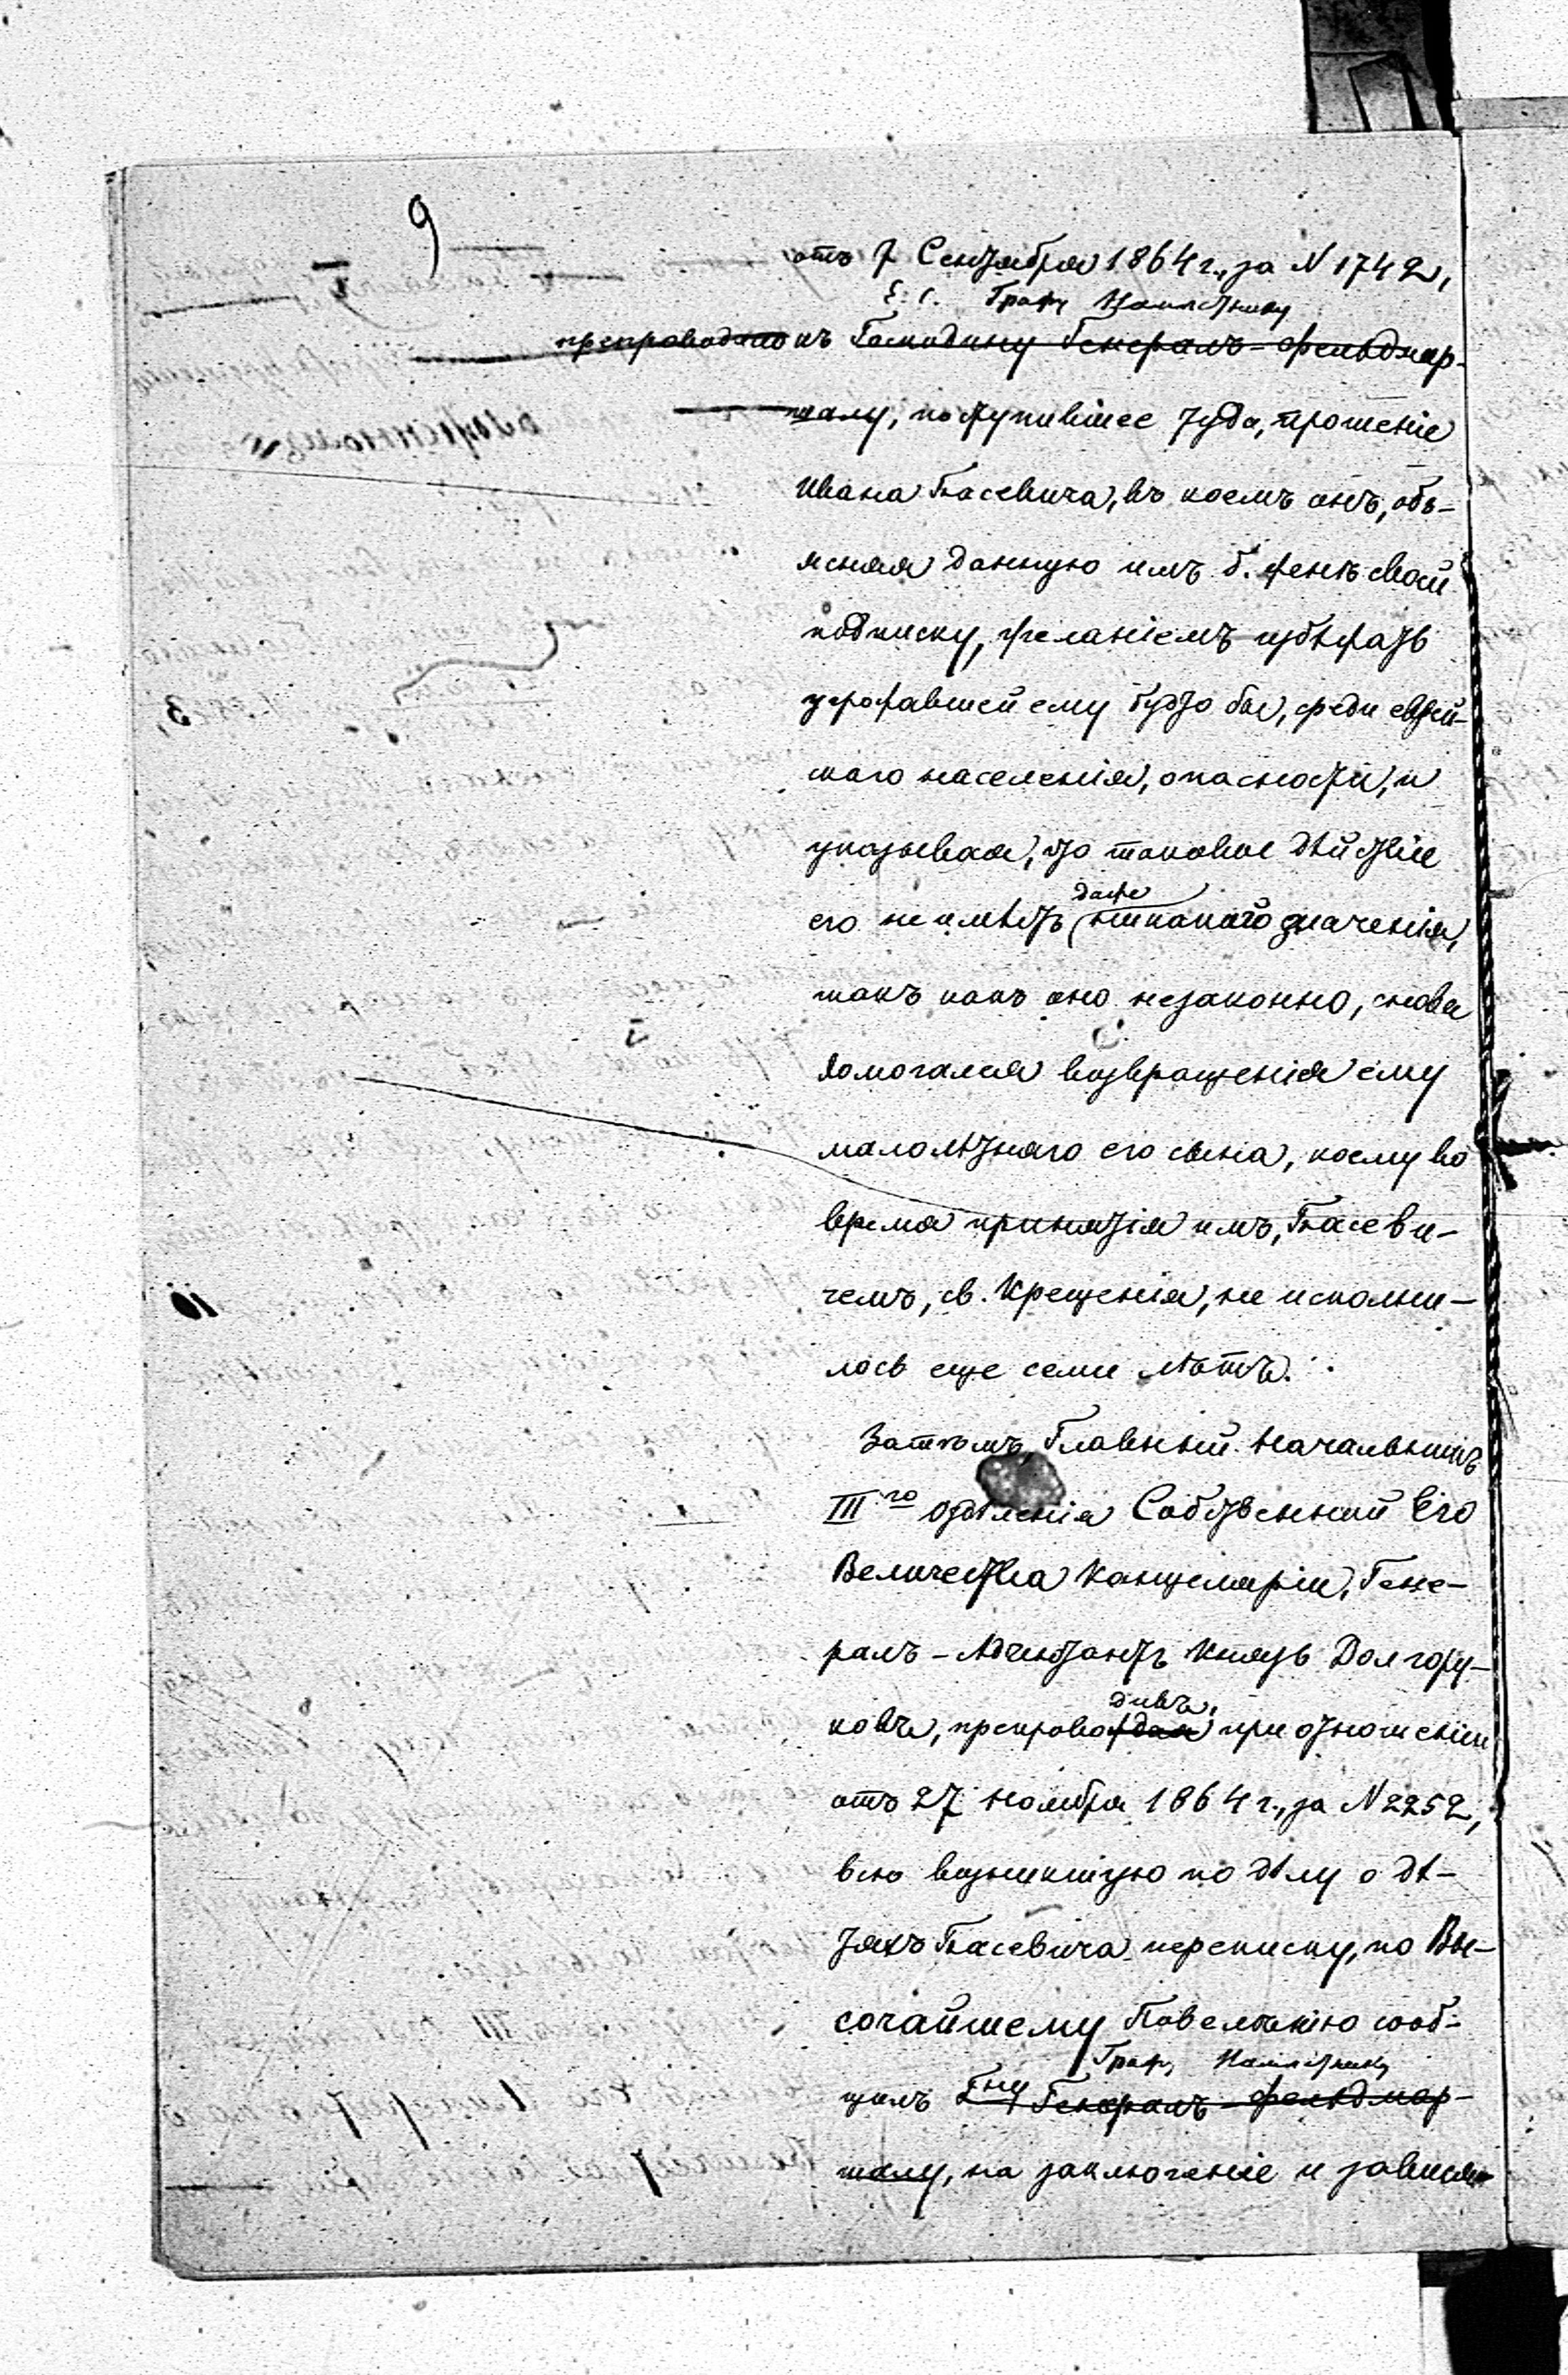 9
отъ 7 Сентября 1864 г., за N 1742,
Е. С. Графу Намѣстнику
препровождено къ Господину Генералъ-Фельдмар-
шалу, поступившее туда, прошеніе
Ивана Басевича, въ коемъ онъ, объ-
ясняя данную имъ б. женѣ своей
подписку, желаніемъ избѣжать
угрожавшей ему будто бы, среди еврей-
скаго населенія, опасности, и
указывая, что таковое дѣйствіе
даже
его не имѣетъ никакого значенія,
такъ какъ оно незаконно, снова
домогался возвращенія ему
малолѣтняго его сына, коему во
время принятія имъ, Басеви-
чемъ, св. Крещенія, не исполни-
лось еще семи лѣтъ.
Затѣмъ Главный Начальникъ
III го Отдѣленія Собственной Его
Величества Канцеляріи, Гене-
ралъ-Адъютантъ Князь Долгору-
дивъ,
ковъ, препровождая при отношеніи
отъ 27 Ноября 1864 г., за N 2252,
всю возникшую по дѣлу о дѣ-
тяхъ Басевича переписку, по Вы-
сочайшему Повелѣнію сооб-
Графу Намѣстнику
щилъ Гну Генералъ-Фельдмар-
шалу, на заключеніе и зависи-